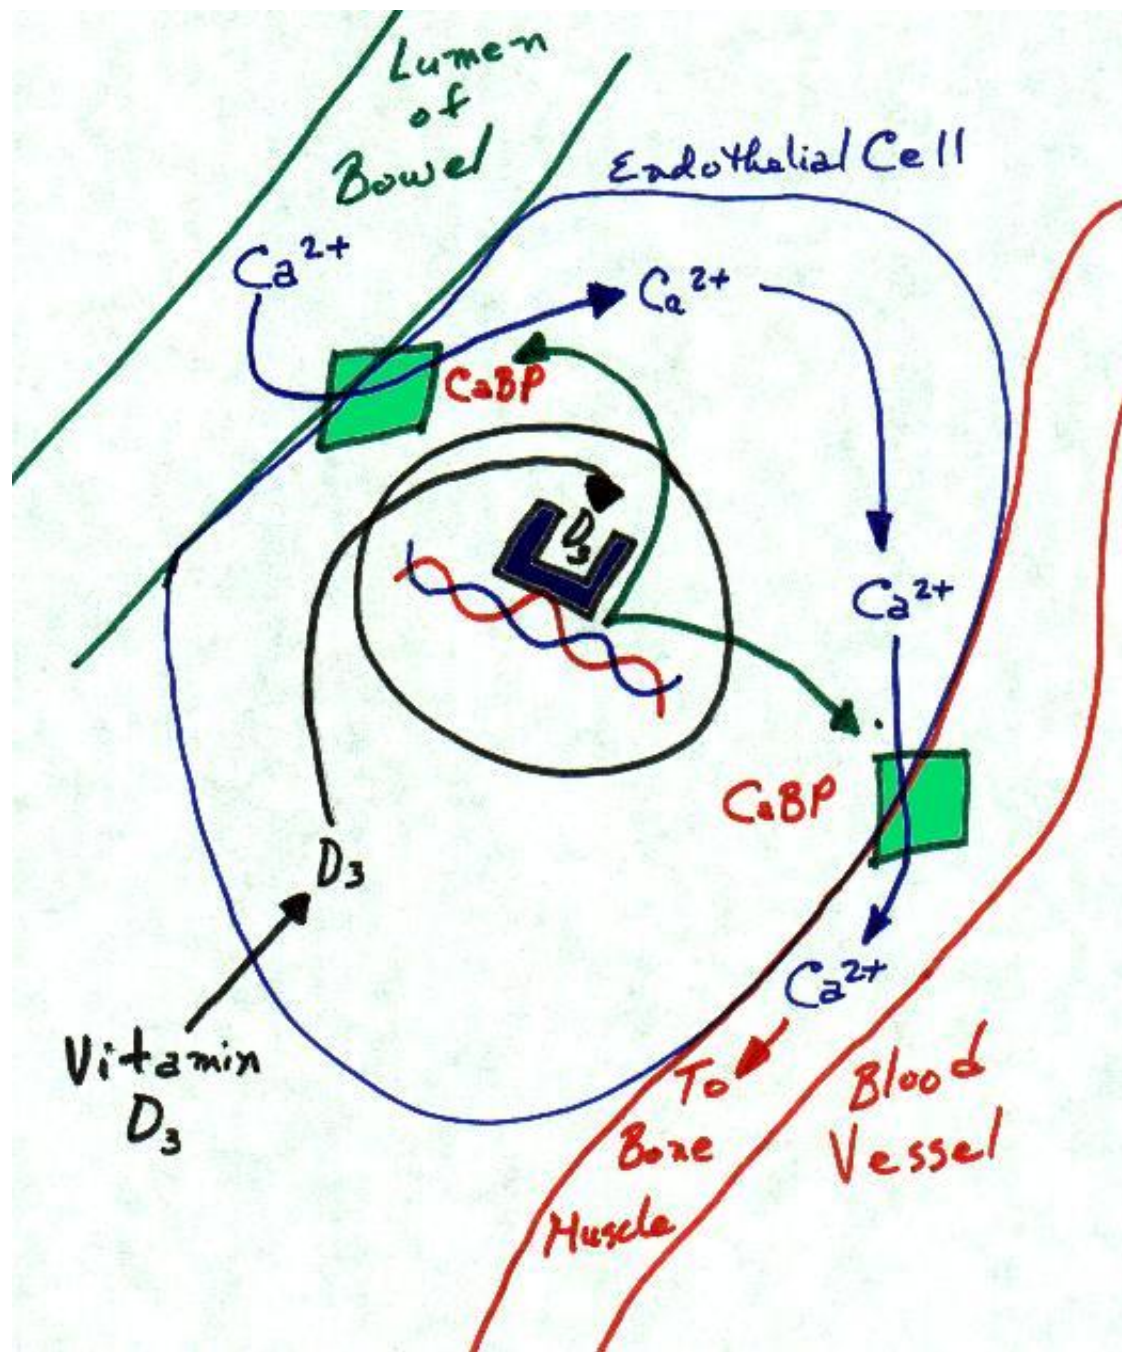 Lumen
of
Bowel
Endothelial Cell
Ca²⁺
Ca²⁺
CaBP
D₃
Ca²⁺
CaBP
D₃
Ca²⁺
Vitamin
D₃
To
Bone
Muscle
Blood
Vessel